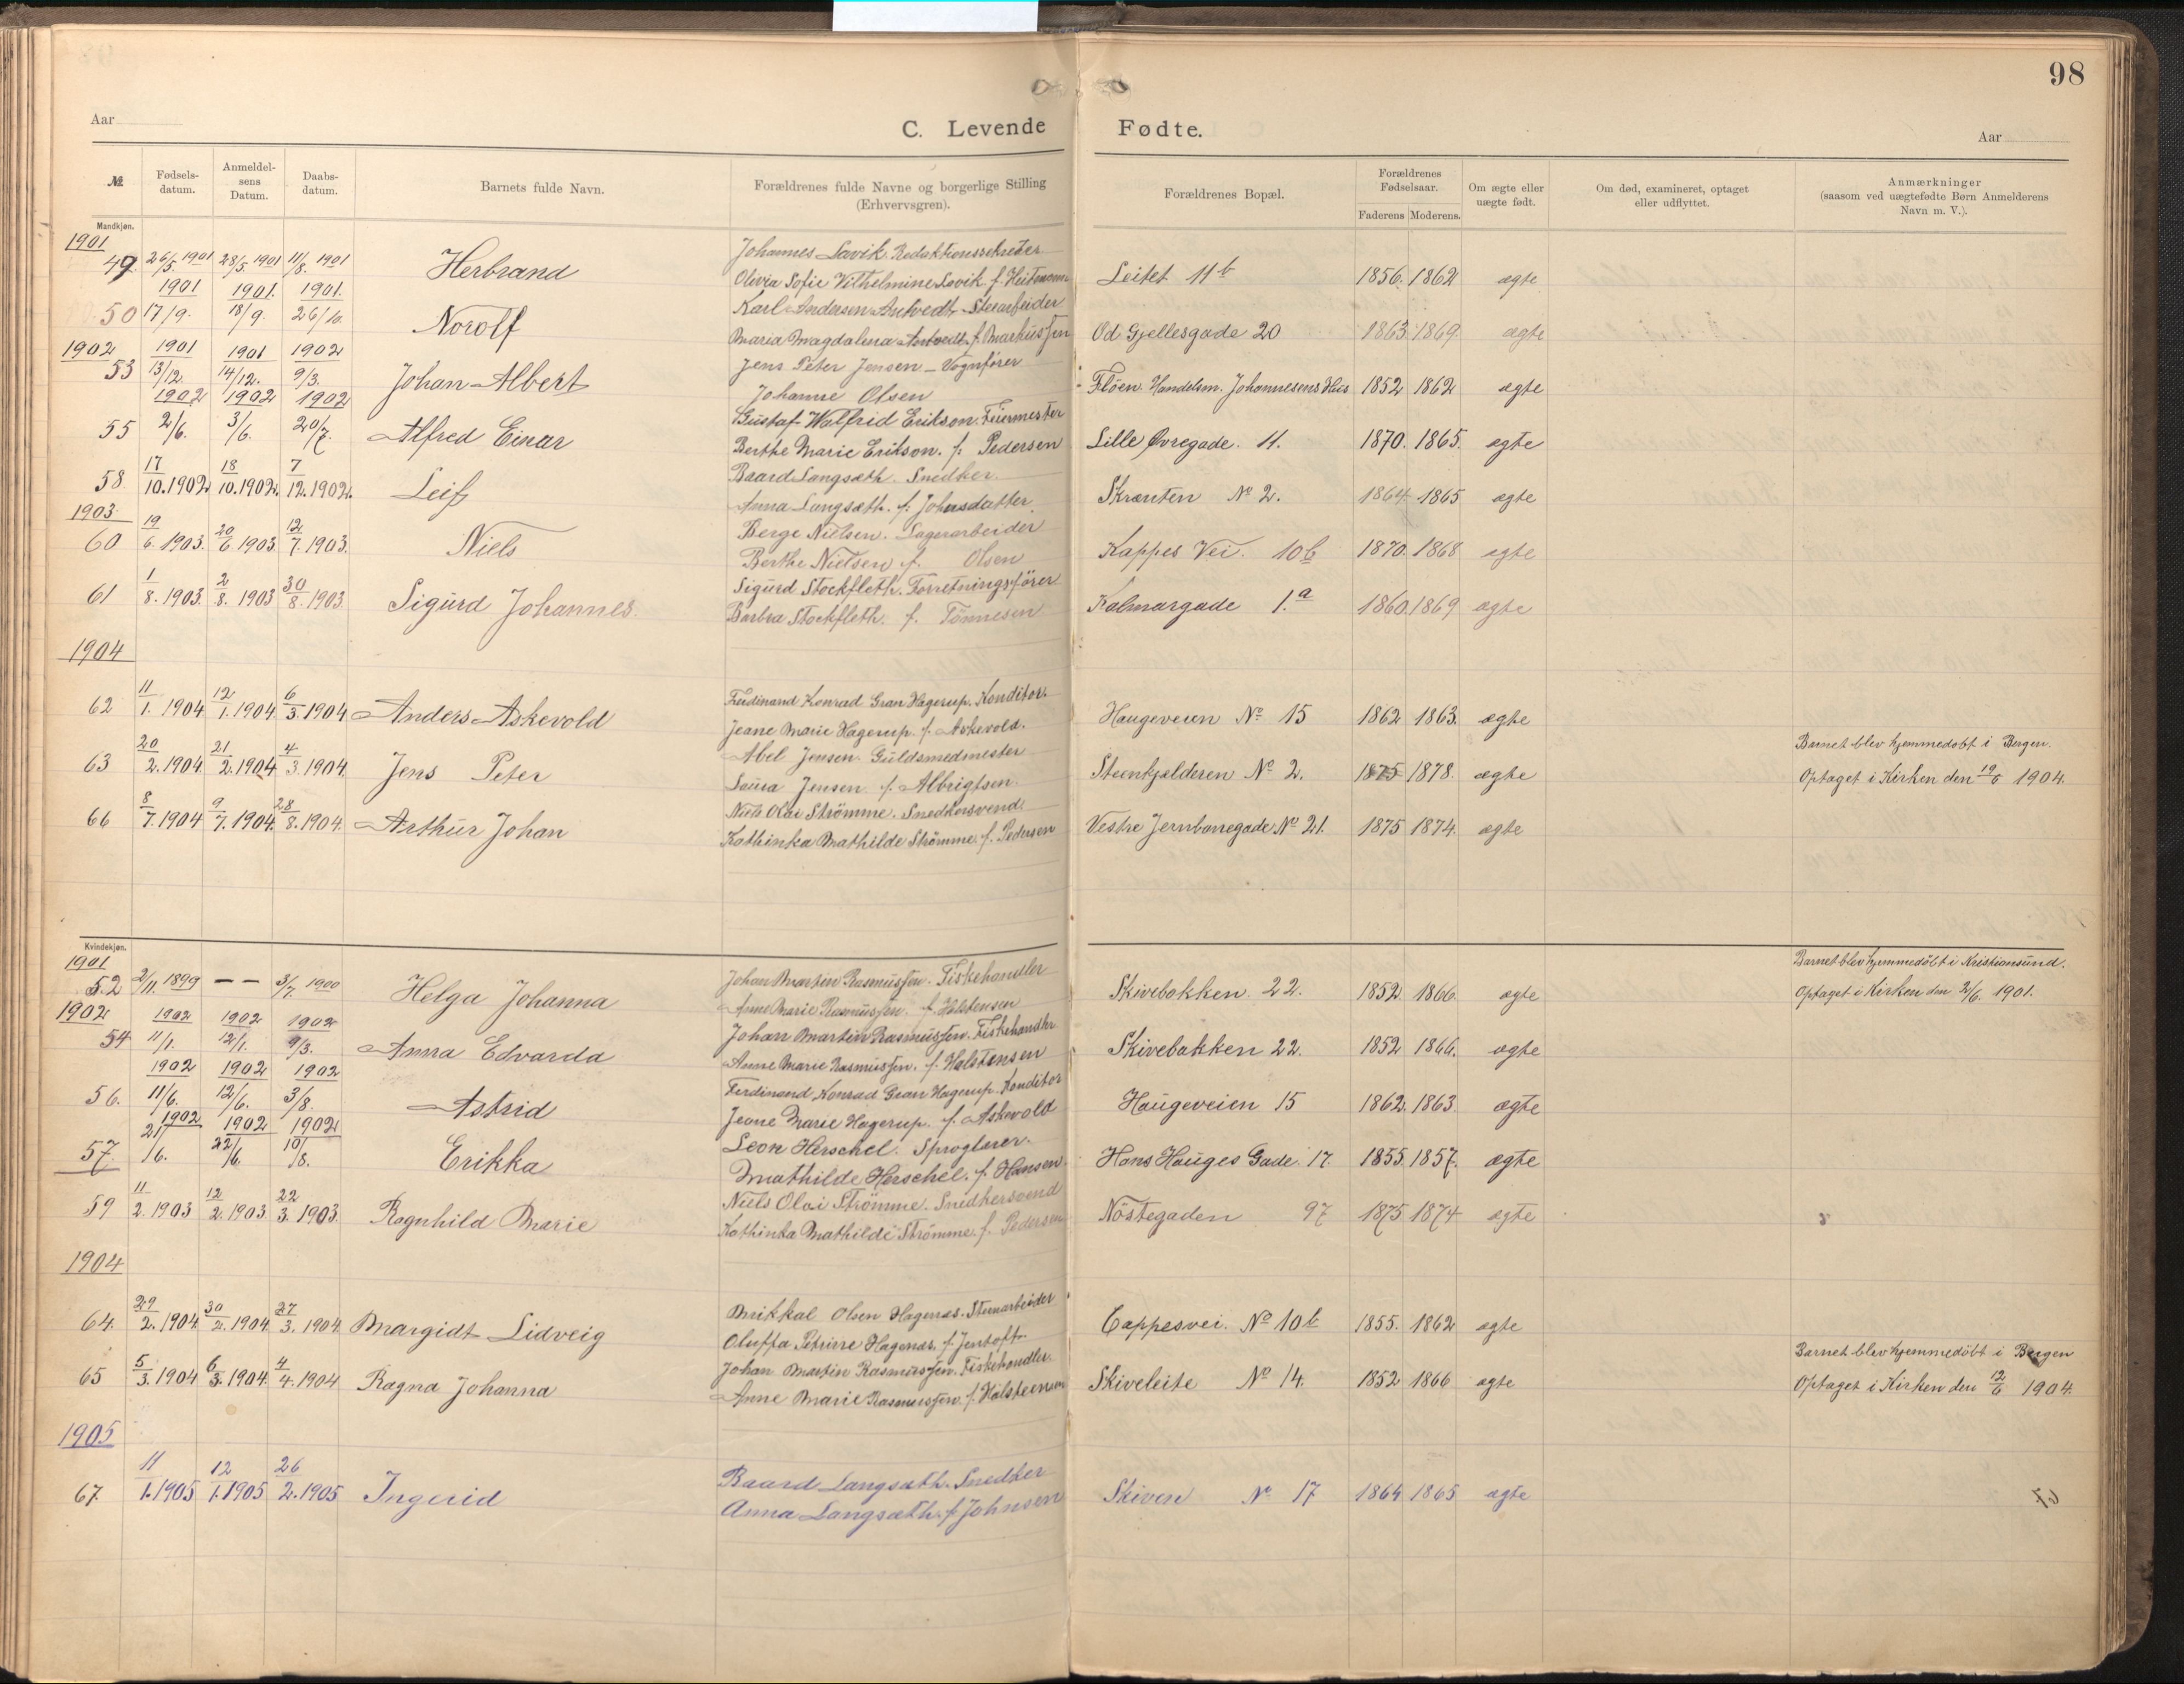 98
Aar
C. Levende Fødte.
Aar
№
Fødsels-datum.
Anmeldel-sens Datum.
Daabs-datum.
Barnets fulde Navn.
Forældrenes fulde Navne og borgerlige Stilling (Erhvervsgren).
Forældrenes Bopæl.
Forældrenes Fødselsaar.
Faderens Moderens.
Om ægte eller uægte født.
Om død, examineret, optaget eller udflyttet.
Anmærkninger (saasom ved uægtefødte Børn Anmelderens Navn m. V.).
Mandkjøn.
1901
49. 26/5 1901 28/5 1901 11/8 1901 Herbrand Johannes Lavik. Redaktionssekretær
Olivia Sofie Vilhelmine Lavik f. Leitet 11b 1856. 1862 ægte
1901 1901. 1901.
50 17/9. 18/9. 26/10. Norolf Karl Andersen
Maria Magdalena f. Markussen Od Gjellesgade 20 1863. 1869. ægte
1902 1901 1901 1902
53 13/12. 14/12. 9/3. Johan Albert Jens Peter Jensen – Vognfører
Johanne Olsen Fløen. Handelsm. Johannesens Hus 1852 1862 ægte
1902 1902 1902
55 2/6. 3/6. 20/7. Alfred Einar Gustaf Walfrid Erikson. Feiermester
Berthe Marie Erikson. f. Pedersen Lille Øvregade. 11. 1870. 1865. ægte
58. 17/10. 1902 18/10. 1902. 7/12. 1902. Leif Baard Langsæth. Snedker.
Anna Langsæth. f. Johnsdatter. Skrænten № 2. 1864. 1865 ægte
1903
60 19/6. 1903. 20/6 1903. 12/7. 1903. Niels Berge Nielsen. Lagerarbeider
Berthe Nielsen f. Olsen Kappes Vei. 10b 1870. 1868 ægte
61 1/8. 1903. 2/8. 1903 30/8. 1903. Sigurd Johannes. Sigurd Stockfleth. Forretningsfører
Barbra Stockfleth. f. Tønnesen Kalmargade 1.a 1860. 1869 ægte
1904
62 11/1. 1904 12/1. 1904 6/3. 1904 Anders Askevold Ferdinand Konrad Gran Hagerup. Konditor.
Jeane Marie Hagerup. f. Askevold. Haugeveien № 15 1862 1863. ægte
63 20/2. 1904. 21/2. 1904 4/3. 1904. Jens Peter Abel Jensen. Guldsmedmester
Laura Jensen f. Albrigtsen. Steenkjælderen № 2. 1875 1878. ægte Barnet blev hjemmedøbt i Bergen.
Optaget i Kirken den 19/6 1904.
66 8/7. 1904 9/7. 1904. 28/8. 1904. Arthur Johan Niels Olai Strömme. Snedkersvend.
Kathinka Mathilde Strömme. f. Pedersen Vestre Jernbanegade № 21. 1875 1874. ægte
Kvindekjøn.
1901
52 2/11. 1899 – – 3/7. 1900 Helga Johanna Johan Martin Rasmussen. Fiskehandler
Anne Marie Rasmussen. f. Halstensen Skivebakken. 22. 1852. 1866. ægte Barnet blev hjemmedøbt i Kristiansund.
Optaget i Kirken den 2/6. 1901.
1902 1902 1902 1902
54 11/1. 12/1. 9/3. Anna Edvarda Johan Martin Rasmussen. Fiskehandler
Anne Marie Rasmussen. f. Halstensen Skivebakken 22. 1852 1866. ægte
1902 1902 1902
56. 11/6. 12/6. 3/8. Astrid Ferdinand Konrad Gran Hagerup. Konditor
Jeane Marie Hagerup. f. Askevold Haugeveien 15 1862. 1863. ægte
1902 1902 1902
57. 21/6. 22/6. 10/8. Erikka Leon Herschel. Sproglærer.
Mathilde Herschel. f. Hansen. Hans Hauges Gade. 17. 1855. 1857. ægte
59 11/2. 1903 12/2. 1903 22/3. 1903. Ragnhild Marie Niels Olai Strömme. Snedkersvend
Kathinka Mathilde Strömme. f. Pedersen Nöstegaden 97 1875 1874 ægte
1904
64. 29/2. 1904 30/2. 1904. 27/3. 1904. Margidt Lidveig Mikkal Olsen Hagenæs. Stenarbeider
Oluffa Petrine Hagenæs. f. Jentoft. Cappesvei. № 10b 1855. 1862 ægte
65 5/3. 1904 6/3. 1904. 4/4. 1904 Ragna Johanna Johan Martin Rasmussen. Fiskehandler.
Anne Marie Rasmussen. f. Halsteensen Skiveleite № 14. 1852 1866 ægte Barnet blev hjemmedøbt i Bergen
Optaget i Kirken den 12/6 1904.
1905
67. 11/1. 1905 12/1. 1905 26/2. 1905 Ingerid Baard Langsæth. Snedker
Anna Langsæth. f. Johnsen Skiven № 17 1864 1865 ægte